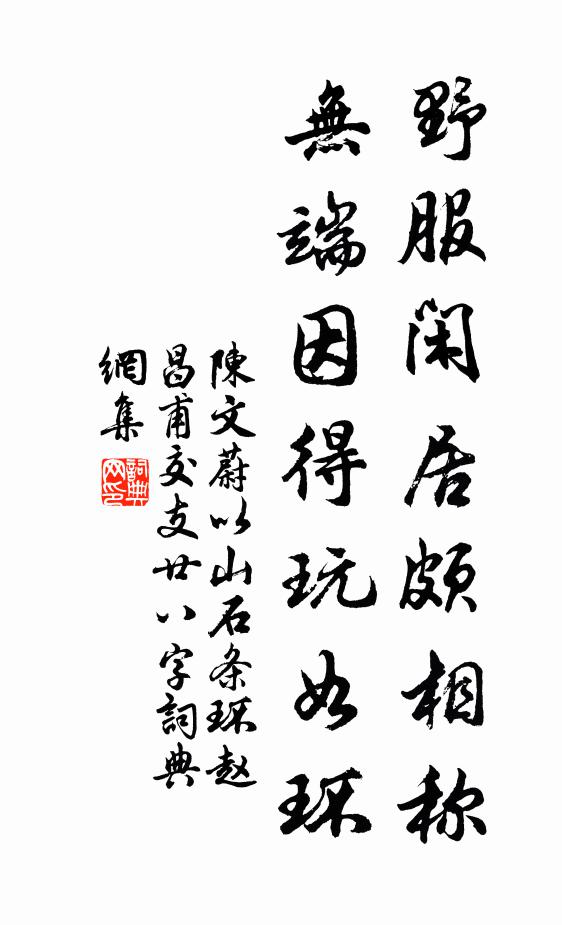 野服閑居頗相称
無端因得玩如环
陳文蔚以山石条环赵
昌甫交支廿八字詞典
網集
詞典网印